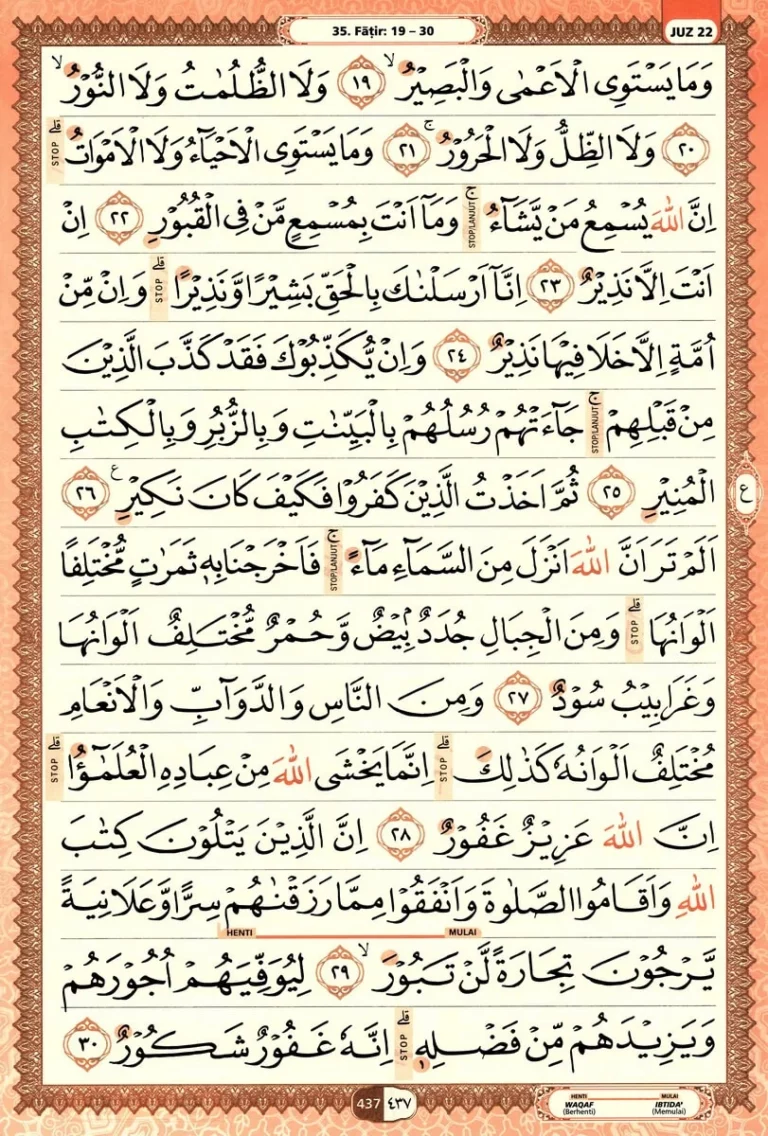 35. Fāṭir: 19 – 30
JUZ 22
وَمَا يَسْتَوِى الْاَعْمٰى وَالْبَصِيْرُۙ ١٩ وَلَا الظُّلُمٰتُ وَلَا النُّوْرُۙ
٢٠ وَلَا الظِّلُّ وَلَا الْحَرُوْرُۚ ٢١ وَمَا يَسْتَوِى الْاَحْيَاۤءُ وَلَا الْاَمْوَاتُۗ STOP
اِنَّ اللّٰهَ يُسْمِعُ مَنْ يَّشَاۤءُۚ STOP/LANJUT وَمَآ اَنْتَ بِمُسْمِعٍ مَّنْ فِى الْقُبُوْرِ ٢٢ اِنْ
اَنْتَ اِلَّا نَذِيْرٌ ٢٣ اِنَّآ اَرْسَلْنٰكَ بِالْحَقِّ بَشِيْرًا وَّنَذِيْرًاۗ STOP وَاِنْ مِّنْ
اُمَّةٍ اِلَّا خَلَا فِيْهَا نَذِيْرٌ ٢٤ وَاِنْ يُّكَذِّبُوْكَ فَقَدْ كَذَّبَ الَّذِيْنَ
مِنْ قَبْلِهِمْۚ STOP/LANJUT جَاۤءَتْهُمْ رُسُلُهُمْ بِالْبَيِّنٰتِ وَبِالزُّبُرِ وَبِالْكِتٰبِ
الْمُنِيْرِ ٢٥ ثُمَّ اَخَذْتُ الَّذِيْنَ كَفَرُوْا فَكَيْفَ كَانَ نَكِيْرِ ࣖ ٢٦
ع
اَلَمْ تَرَ اَنَّ اللّٰهَ اَنْزَلَ مِنَ السَّمَاۤءِ مَاۤءًۚ STOP/LANJUT فَاَخْرَجْنَا بِهٖ ثَمَرٰتٍ مُّخْتَلِفًا
اَلْوَانُهَاۗ STOP وَمِنَ الْجِبَالِ جُدَدٌۢ بِيْضٌ وَّحُمْرٌ مُّخْتَلِفٌ اَلْوَانُهَا
وَغَرَابِيْبُ سُوْدٌ ٢٧ وَمِنَ النَّاسِ وَالدَّوَاۤبِّ وَالْاَنْعَامِ
مُخْتَلِفٌ اَلْوَانُهٗ كَذٰلِكَۗ STOP اِنَّمَا يَخْشَى اللّٰهَ مِنْ عِبَادِهِ الْعُلَمٰۤؤُاۗ STOP
اِنَّ اللّٰهَ عَزِيْزٌ غَفُوْرٌ ٢٨ اِنَّ الَّذِيْنَ يَتْلُوْنَ كِتٰبَ
اللّٰهِ وَاَقَامُوا الصَّلٰوةَ وَاَنْفَقُوْا مِمَّا رَزَقْنٰهُمْ سِرًّا وَّعَلَانِيَةً
HENTI MULAI
يَّرْجُوْنَ تِجَارَةً لَّنْ تَبُوْرَۙ ٢٩ لِيُوَفِّيَهُمْ اُجُوْرَهُمْ
وَيَزِيْدَهُمْ مِّنْ فَضْلِهٖۗ STOP اِنَّهٗ غَفُوْرٌ شَكُوْرٌ ٣٠
437 ٤٣٧
HENTI MULAI
WAQAF IBTIDA'
(Berhenti) (Memulai)